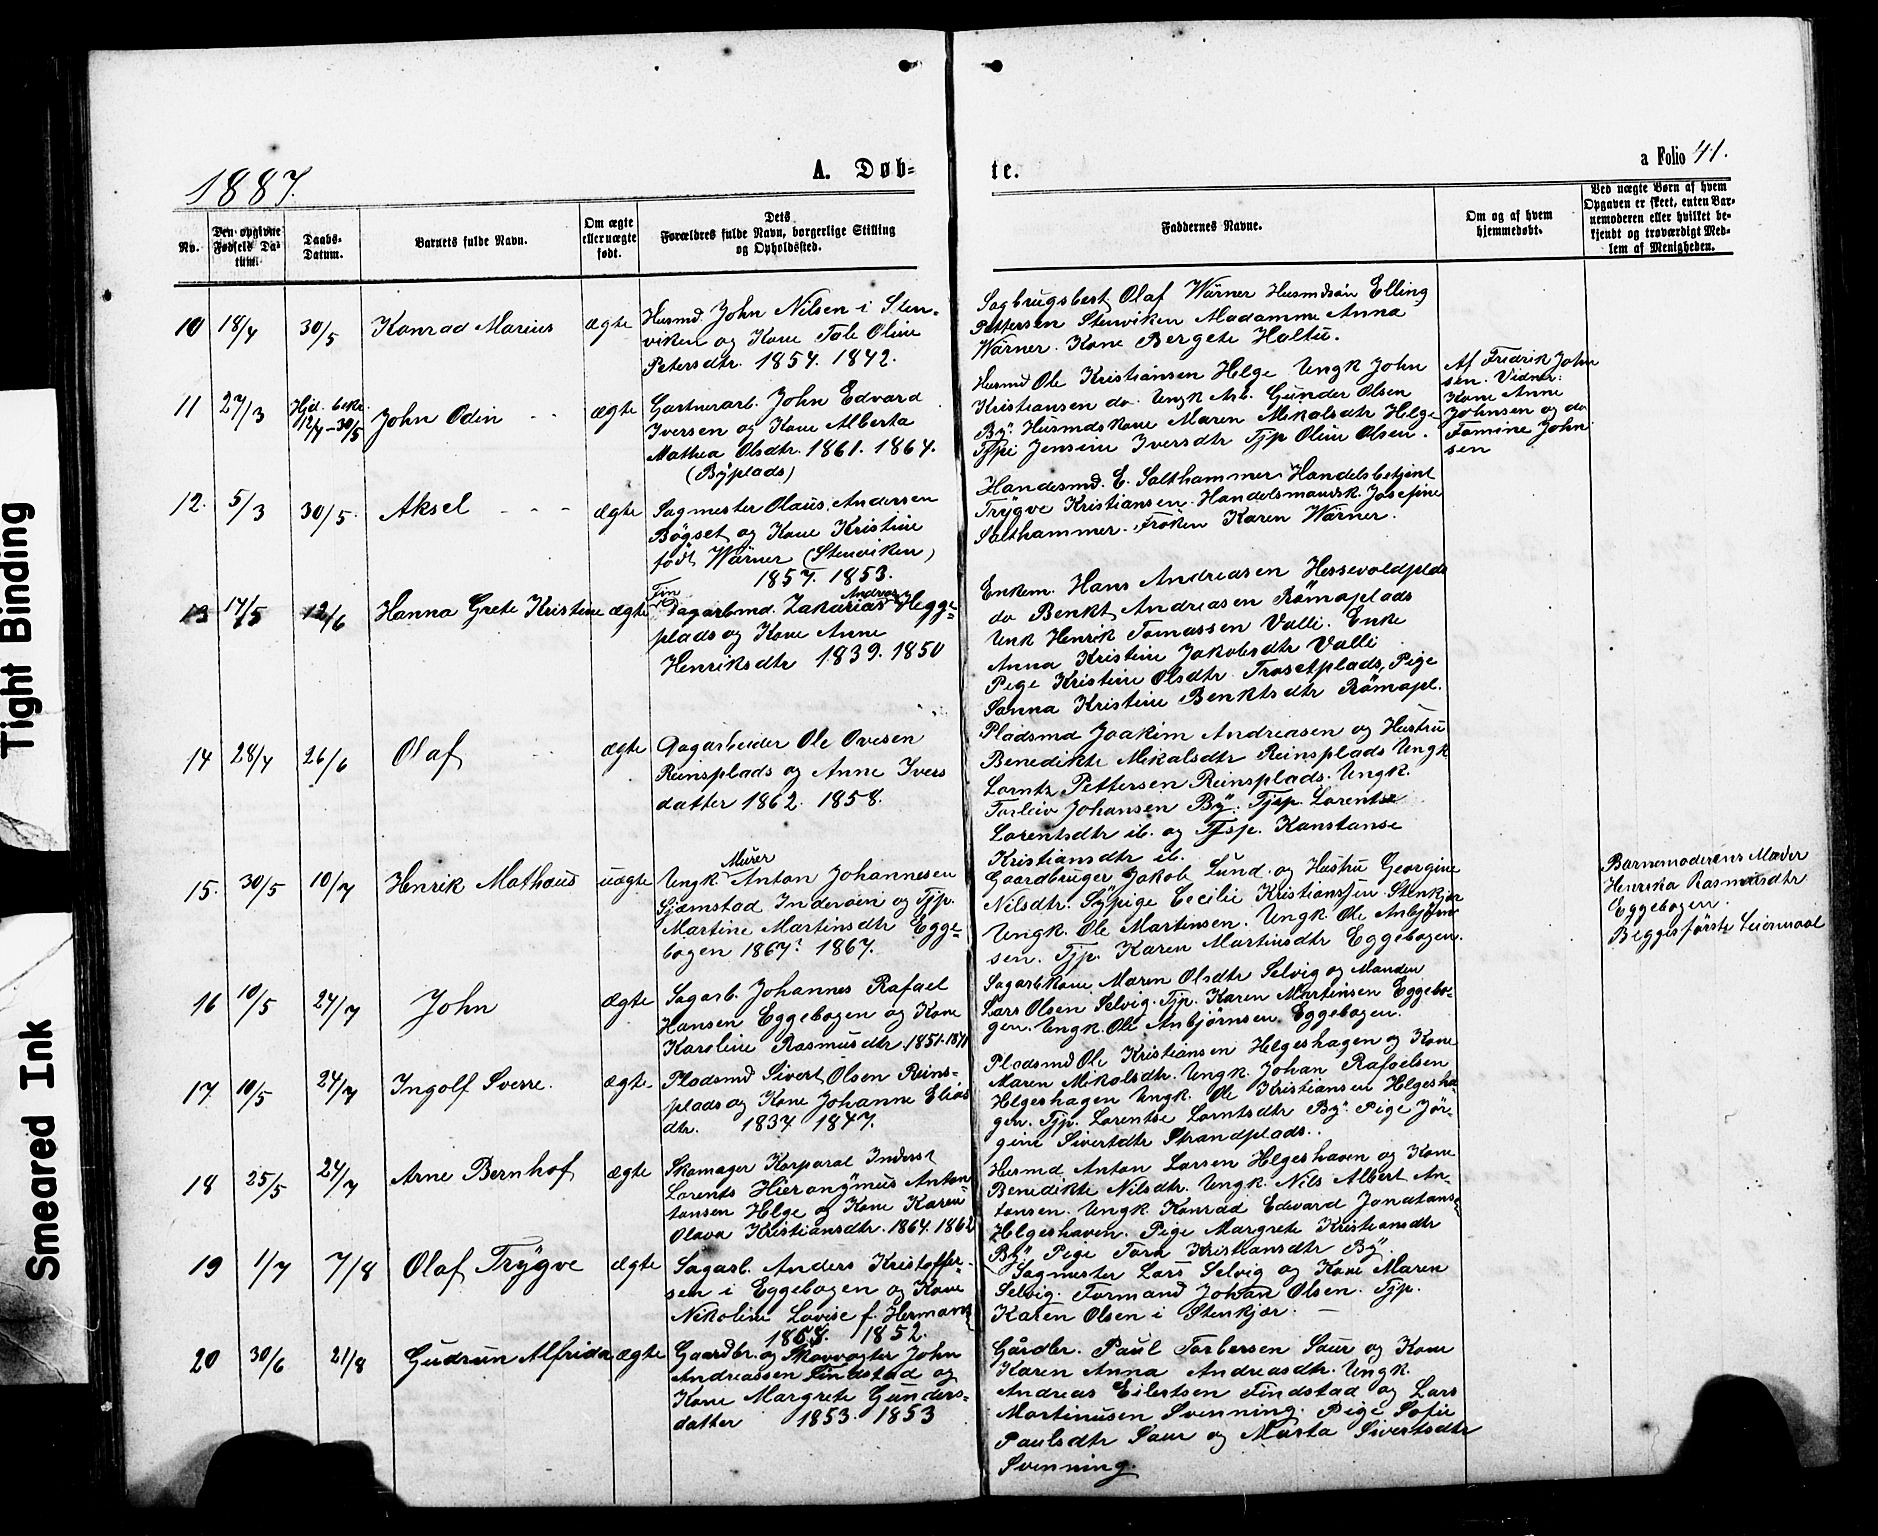 Tight Binding
Smeared Ink
1887.
A. Døb-
te.
a Folio 41.
No.
Den opgivne Fødsels Datum.
Daabs-Datum.
Barnets fulde Navn.
Om ægte eller uægte født.
Dets Forældres fulde Navn, borgerlige Stilling og Opholdssted.
Faddernes Navne.
Om og af hvem hjemmedøbt.
Ved uægte Børn af hvem Opgaven er skeet, enten Barnemoderen eller hvilket bekjendt og troværdigt Medlem af Menigheden.
10 18/4 30/5 Konrad Marius ægte
Husmd. John Nilsen i Sten-
viken og Kone Tale Oline
Petersdtr. 1854. 1842.
Sagbrugsbest. Olaf Wärner Husmdsøn Elling
Pettersen Stenviken Madamme Anna
Wärner. Kone Bergete Haltu.
11 27/3 Hjd. bekr. 12/4-30/5 John Odin ægte
Gartnerarb. John Edvard
Iversen og Kone Alberta
Mathea Olsdtr. 1861. 1864.
(Byplads)
Husmd Ole Kristiansen Helge Ungk John
Kristiansen do. Ungk Arb. Gunder Olsen
By. Husmdskone Maren Mikalsdtr Helge
Tjpi Jensine Iversdtr Tjp Oline Olsen.
Af Fredrik John
sen. Vidner:
Kone Anne
Johnsen og do
Tomine John
sen
12. 5/3 30/5. Aksel ægte
Sagmester Olaus Andersen
Bøgset og Kone Kristine
født Wärner (Stenviken)
1857. 1853.
Handesmd. E. Salthammer Handelsbetjent
Trygve Kristiansen. Handelsmandsk. Josefine
Salthammer. Frøken Karen Wärner.
13 17/5 12/6 Hanna Grete Kristine ægte
Tin
Dagarbmd. Zakarias Andreas Hegge-
plads og Kone Anne
Henriksdtr 1839. 1850
Enkem. Hans Andreasen Hessevoldplds
do Benkt Andreasen Römaplads
Unk Henrik Tomassen Valli. Enke
Anna Kristine Jakobsdtr Valli
Pige Kristine Olsdtr Trøsetplads, Pige
Sanna Kristine Benktsdtr Römapl.
14 28/4 26/6 Olaf ægte
Dagarbeider Ole Ovesen
Reinsplads og Anne Ivers
datter 1862. 1858.
Pladsmd Joakim Andreasen og Hustru
Benedikte Mikalsdtr Reinsplads Ungk
Lornts Pettersen Reinsplads. Ungk.
Torleiv Johansen By. Tjsp. Lorentse
Lorentsdtr ib. og Tjsp. Konstanse
Kristiansdtr ib.
15. 30/5 10/7 Henrik Mathæus uægte
Ungk. Murer Anton Johannesen
Sjæmstad Inderøen og Tjp.
Martine Martinsdtr Egge-
bogen 1867? 1867.
Gaardbruger Jakob Lund og Hustru Georgine
Nilsdtr. Sypige Cecilie Kristiansen Stenkjær
Ungk. Ole Martinsen. Ungk. Ole Anbjørn-
sen. Tjp. Karen Martinsdtr Eggebogen.
Barnemoderens Moder
Henrika Rasmusdtr
Eggebogen.
Begges første Leiermaal
16 10/5 24/7 John ægte
Sagarb. Johannes Rafael
Hansen Eggebogen og Kone
Karoline Rasmusdtr. 1851.
Sagarbkone Maren Olsdtr Selvig og Manden
Lars Olsen Selvig. Tjp. Karen Martinsen Eggebo-
gen. Ungk. Ole Anbjørnsen Eggebogen.
17 10/5 24/7 Ingolf Sverre. ægte
Pladsmd Sivert Olsen Reins-
plads og Kone Johanne Elias
dtr. 1837 1847.
Pladsmd Ole Kristiansen Helgeshagen og Kone
Maren Mikalsdtr. Ungk. Johan Rafaelsen
Helgeshagen Ungk. Ole Kristiansen Helgesha
gen. Tjp. Lorentse Lorntsdtr By. Pige Jør-
gine Sivertdtr Strandplads.
18 25/5 24/7 Arne Bernhof ægte
Skomager Korporal Inders
Lorents Hieronymus Anton
tonsen Helge og Kone Karen
Olava Kristiansdtr. 1864. 1862
Husmd Anton Larsen Helgeshaven og Kone
Benedikte Nilsdtr. Ungk. Nils Albert An-
tonsen. Ungk Konrad Edevard Jonatans
Helgeshaven. Pige Margrete Kristiansdtr
By, Pige Tora Kristiansdtr By.
19 1/7 7/8 Olaf Trygve ægte
Sagarb. Anders Kristoffer-
sen i Eggebogen og Kone
Nikoline Lovise f. Hermans
1858. 1852.
Sagmester Lars Selvig og Kone Maren
Selvig. Formand Johan Olsen. Tjp.
Karen Olsen i Stenkjær.
20 30/6 21/8 Gudrun Alfrida ægte
Gaardbr. og Skovvogter John
Andreassen Findstad og
Kone Margrete Gunders-
datter 1853. 1853
Gårdbr. Paul Torbersen Saur og Kone
Karen Anna Andreasdtr. Ungk.
Andreas Eilertsen Findstad og Lars
Martinusen Svenning. Pige Sofie
Paulsdtr Saur og Marta Sivertsdtr
Svenning.